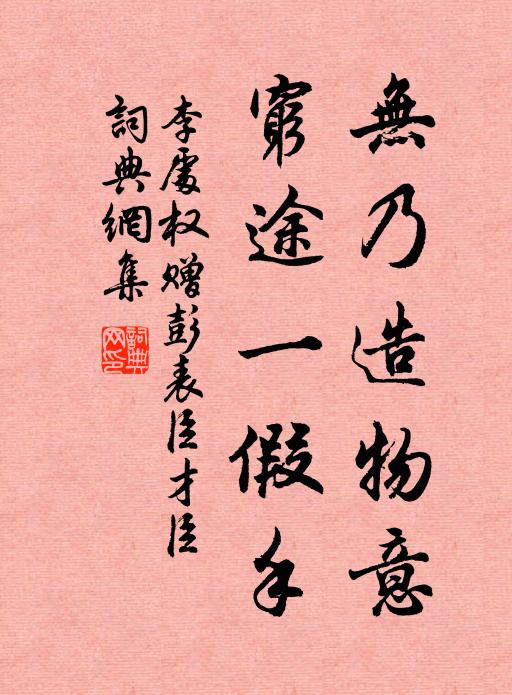 無乃造物意
窮途一假手
李處权赠彭表臣才臣
詞典網集
詞典网印